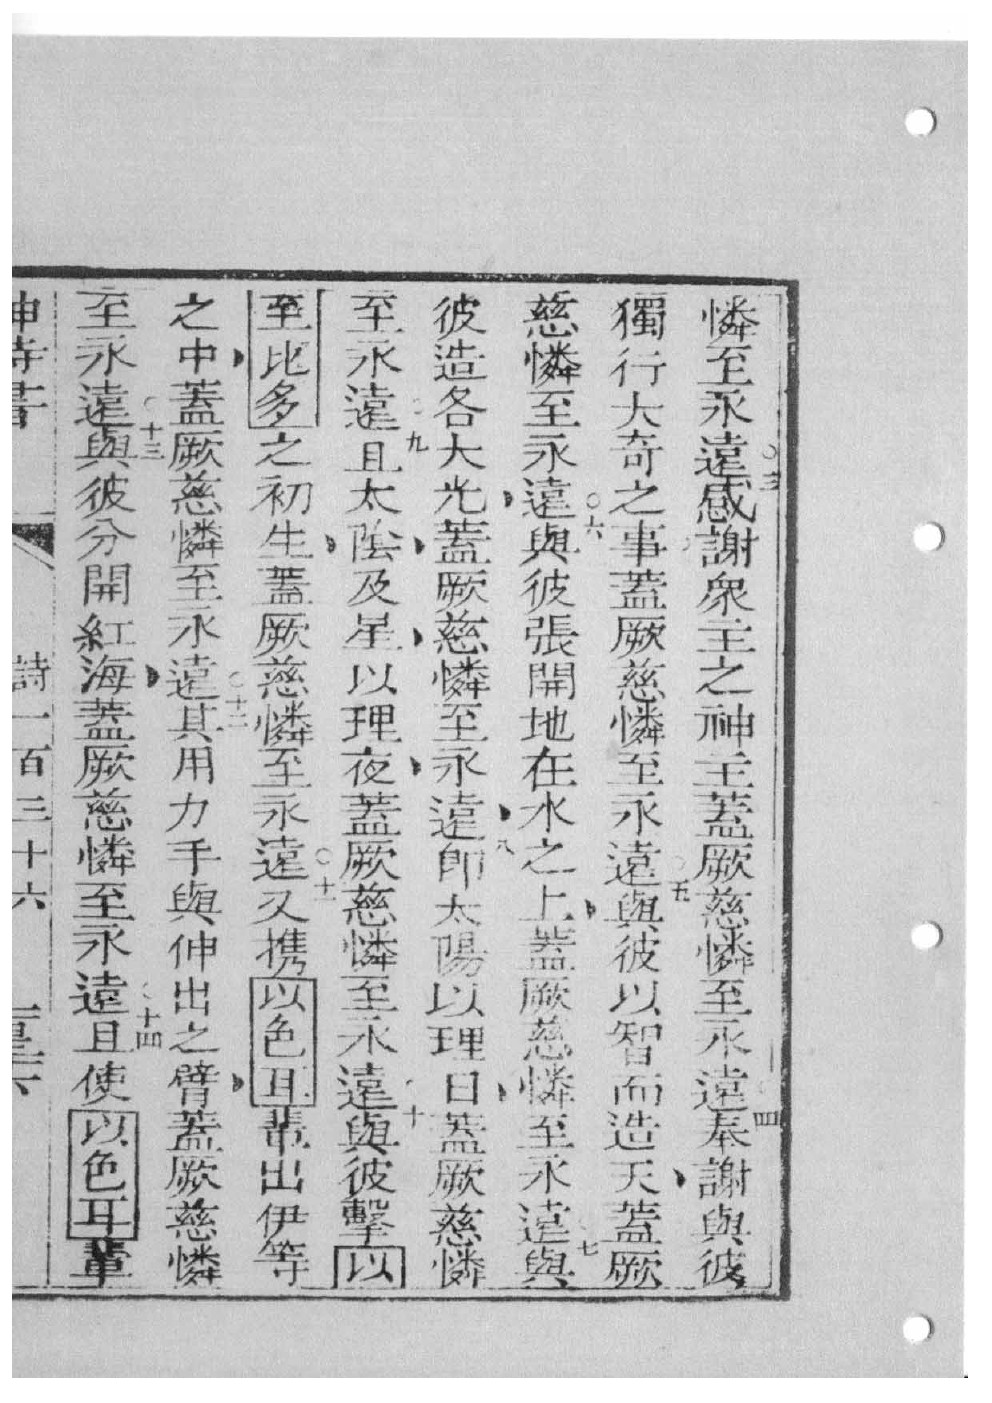 憐至永遠○三感謝眾主之神主蓋厥慈憐至永遠○四奉謝與彼
獨行大奇之事蓋厥慈憐至永遠○五與彼以智而造天蓋厥
慈憐至永遠○六與彼張開地在水之上蓋厥慈憐至永遠○七與
彼造各大光蓋厥慈憐至永遠○八即太陽以理日蓋厥慈憐
至永遠○九且太陰及星以理夜蓋厥慈憐至永遠○十與彼擊以
至比多之初生蓋厥慈憐至永遠○十一又攜以色耳輩出伊等
之中蓋厥慈憐至永遠○十二其用力手與伸出之臂蓋厥慈憐
至永遠○十三與彼分開紅海蓋厥慈憐至永遠○十四且使以色耳輩
神詩書 詩一百三十六